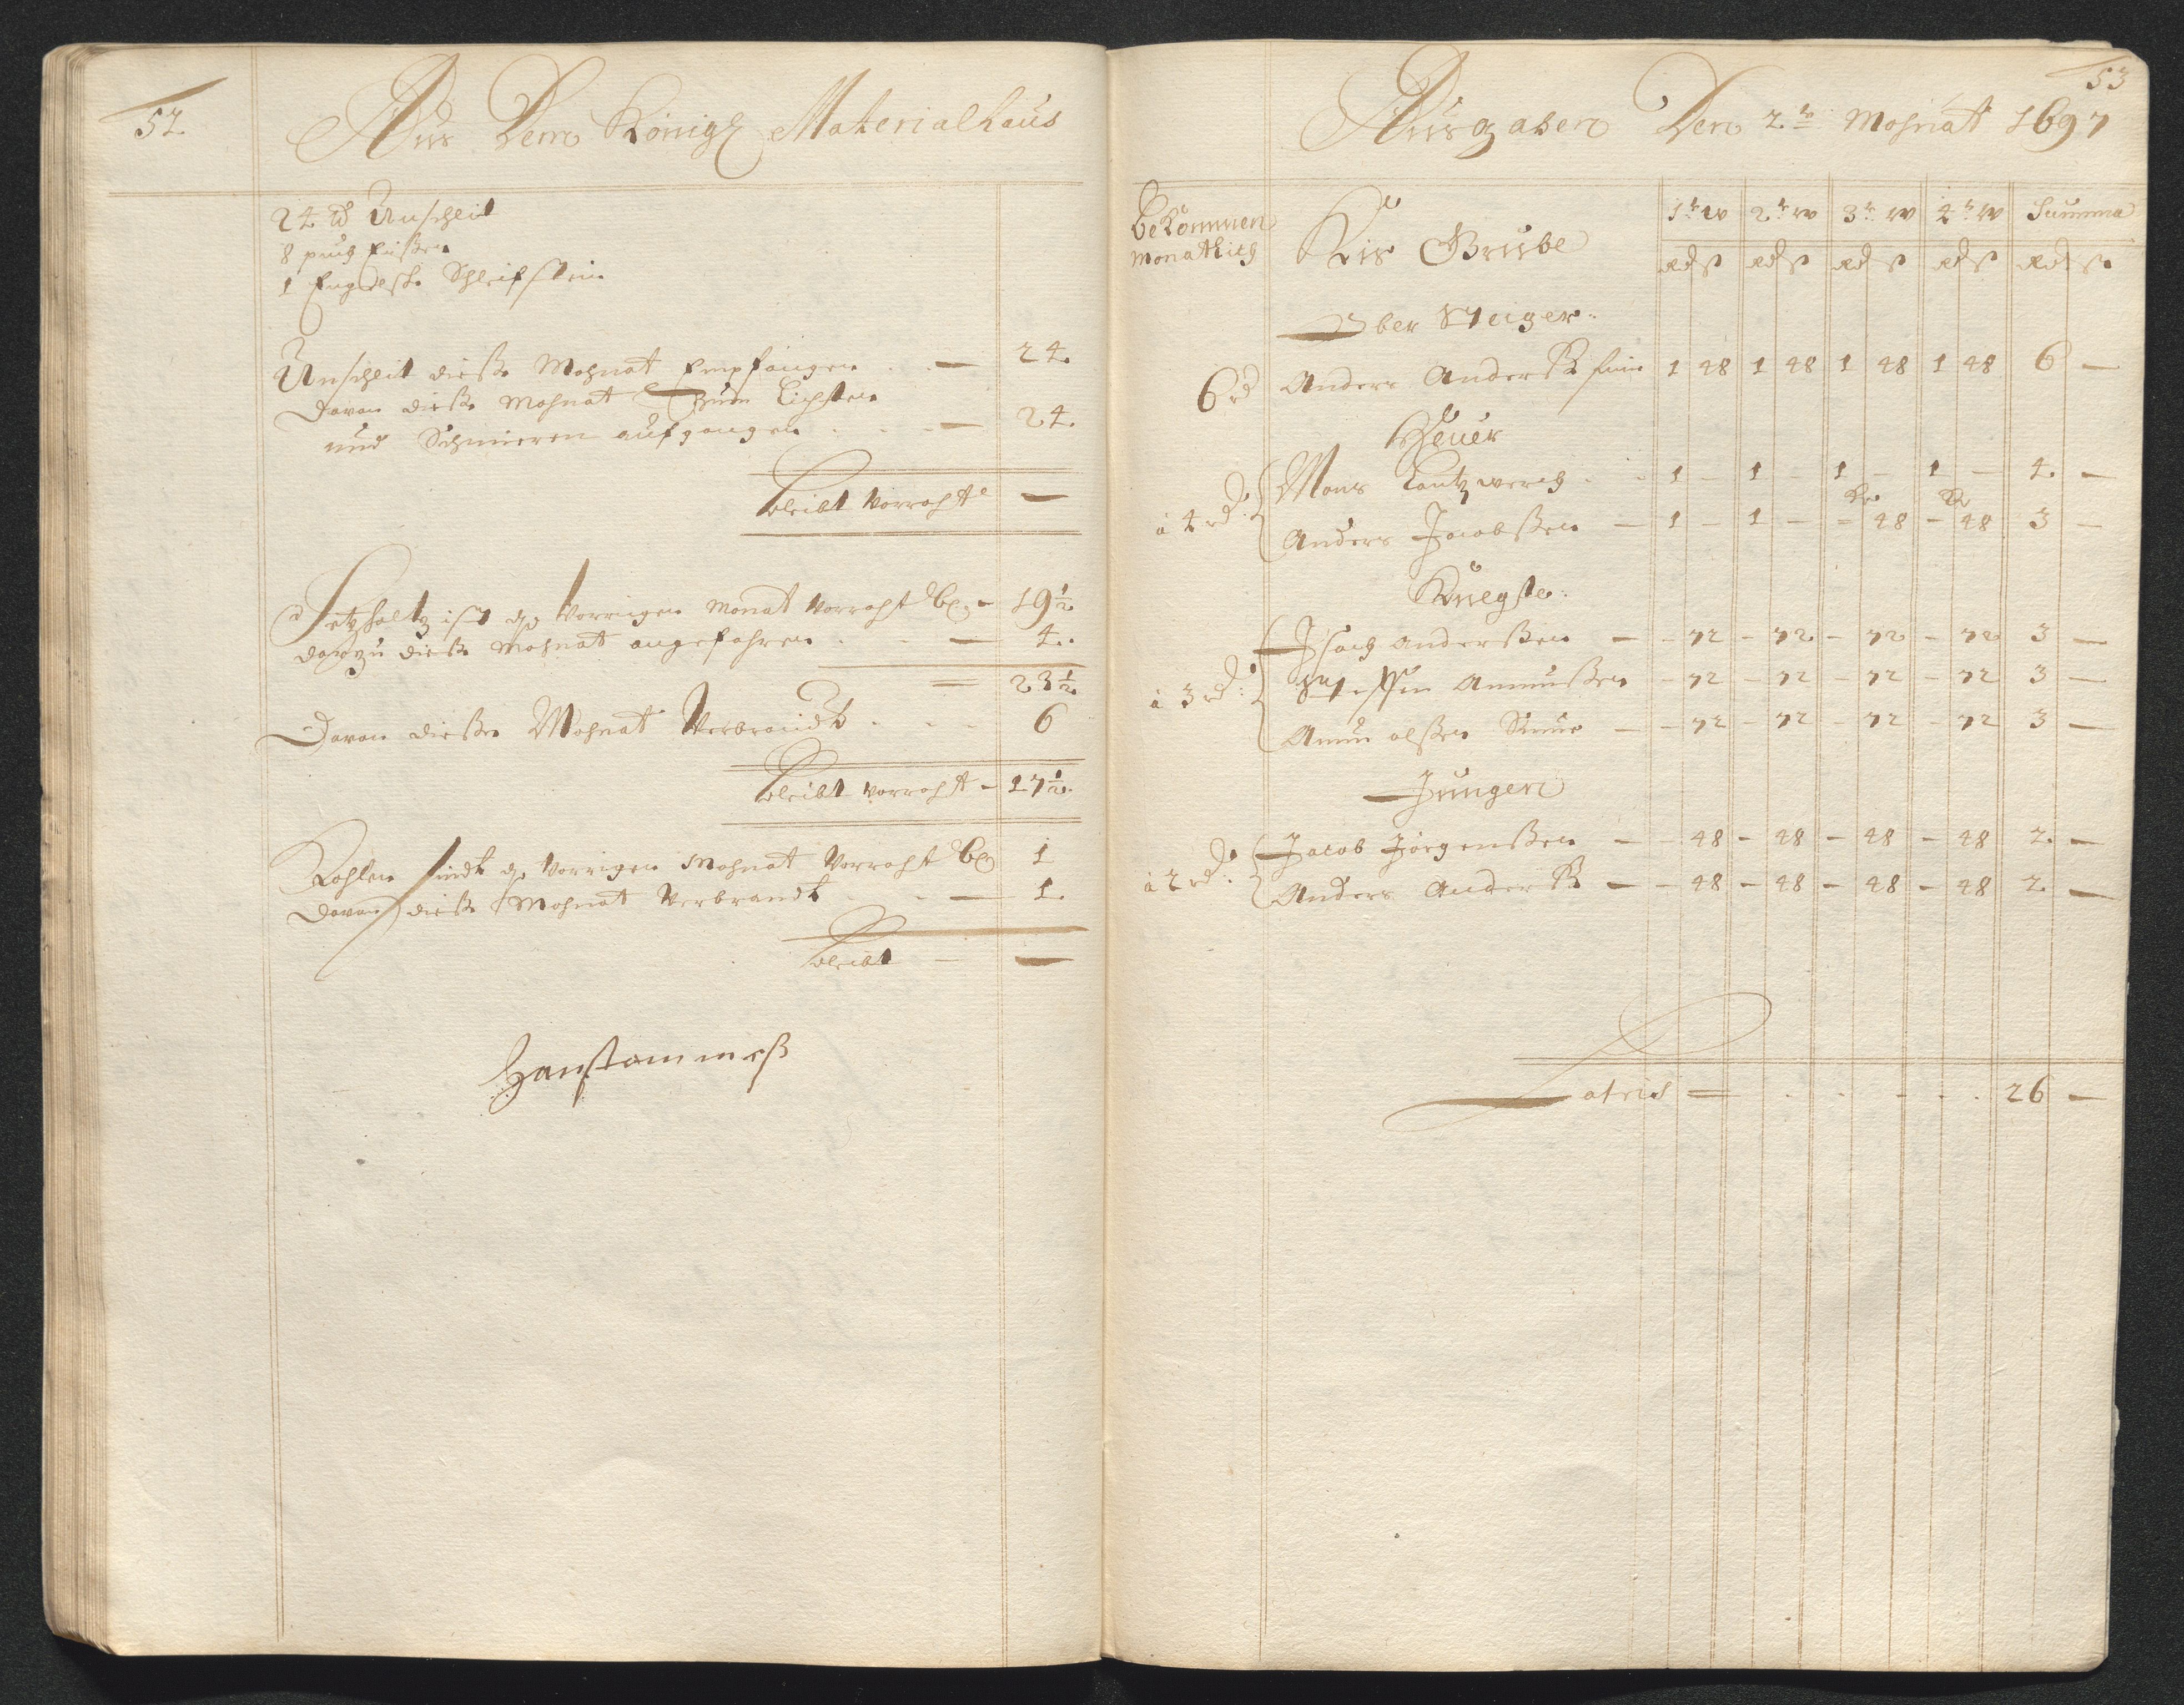 52
Aus Dem Königl Materialhaus
24 ℔ Unschlit
8 puch Eißen
1 Schleifstein
Unschlit dieße Mohnat Empfangen — 24.
Davon dieße Mohnat Zum Lichten
und Schmieren aufgangen — 24.
bleibt Vorraht —
Setzholtz ist Vorrigen Monat Vorraht — 19½
darzu dieße Mohnat angefahren — 4.
23½
Davon dießen Mohnat Verbrandt 6
bleibt vorraht — 17½.
Kohlen sindt Vorrigen Mohnat Vorraht 1
Davon dieße Mohnat Verbrandt — 1.
bleibt — —
53
Ausgaben Den 2te Mohnat 1697
bekommen
monatlich
Kis Grube
1te W 2te W 3te W 4te W Summa
Rd ß Rd ß Rd ß Rd ß Rd ß
Ober Steiger
6 rd Anders Anderß 1 48 1 48 1 48 1 48 6 —
Heuer
à 4 rd
Mons 1 – 1 – 1 – 1 – 4. —
Anders Jacobßen — 1 – 1 – – 48 – 48 3 —
Knegte
à 3 rd
Isach Anderßen — – 72 – 72 – 72 – 72 3 —
Steffen Amunßen – 72 – 72 – 72 – 72 3 —
Amun olßen — – 72 – 72 – 72 – 72 3 —
Jungen
à 2 rd
Jacob Jörgenßen — – 48 – 48 – 48 – 48 2. —
Anders Anderß — – 48 – 48 – 48 – 48 2. —
Latris = 26 —